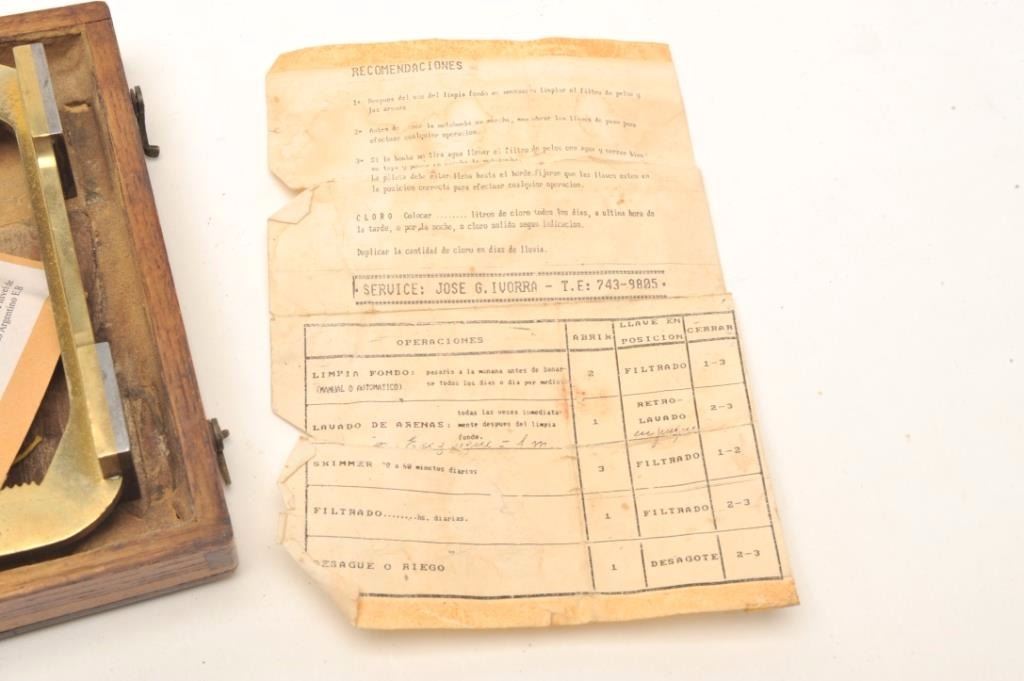 RECOMENDACIONES
1º Despues del uso del limpia fondo es necesario limpiar el filtro de pelos y
las arenas
2º Antes de la motobomba en marcha, abrir las llaves de paso para
efectuar cualquier operacion.
3º Si la bomba no tira agua llenar el filtro de pelos con agua y cerrar bien
su tapa y poner en marcha la motobomba.
La pileta debe estar llena hasta el borde.fijarse que las llaves esten en
la posicion correcta para efectuar cualquier operacion.
CLORO Colocar ........ litros de cloro todos los dias, a ultima hora de
la tarde, o por la noche, o cloro solido segun indicacion.
Duplicar la cantidad de cloro en dias de lluvia.
SERVICE: JOSE G.IVORRA - T.E: 743-9805
OPERACIONES ABRIR LLAVE EN POSICION CERRAR
LIMPIA FONDO: pasarlo a la manana antes de banar-
(MANUAL O AUTOMATICO) se todos los dias o dia por medio
2 FILTRADO 1-3
LAVADO DE ARENAS: todas las veces inmediata-
mente despues del limpia
fondo.
1 RETRO-
LAVADO 2-3
enjuague
SKIMMER minutos diarios 3 FILTRADO 1-2
FILTRADO.......hs. diarias. 1 FILTRADO 2-3
DESAGUE O RIEGO 1 DESAGOTE 2-3
nivel de
Argentino E.B